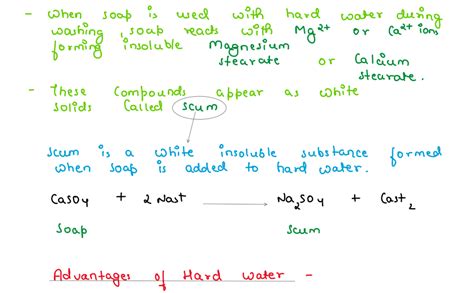 - When soap is used with hard water during
washing, soap reads with Mg²⁺ or Ca²⁺ ions
forming insoluble Magnesium
stearate or Calcium
stearate.
- These Compounds appear as white
solids Called scum
scum is a white insoluble substance formed
when soap is added to hard water.
CaSO4 + 2 NaSt → Na₂SO4 + CaSt₂
soap scum
Advantages of Hard water -